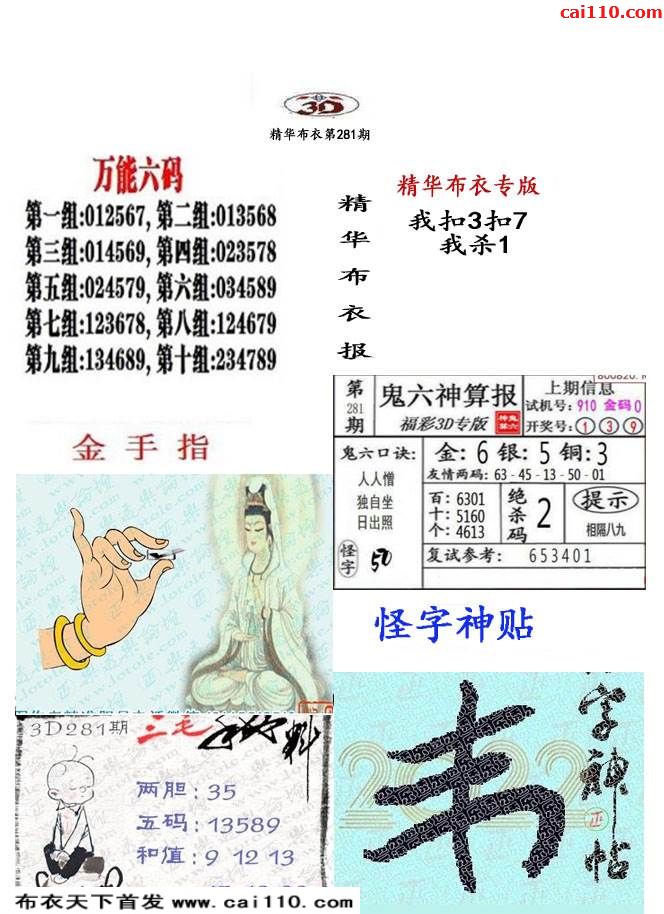 cai110.com
3D
精华布衣第281期
万能六码
第一组:012567, 第二组:013568
第三组:014569, 第四组:023578
第五组:024579, 第六组:034589
第七组:123678, 第八组:124679
第九组:134689, 第十组:234789
精华布衣报
精华布衣专版
我扣3扣7
我杀1
金手指
第281期
鬼六神算报
福彩3D专版
上期信息
试机号: 910 金码0
开奖号: 1 3 9
鬼六口诀:
人人憎
独自坐
日出照
怪字
50
金: 6 银: 5 铜: 3
友情两码: 63-45-13-50-01
百: 6301
十: 5160
个: 4613
绝杀码 2
提示
相隔八九
复试参考: 653401
怪字神贴
字神帖
正
2022
3D281期
三毛
料
两胆: 35
五码: 13589
和值: 9 12 13
布衣天下首发 www.cai110.com